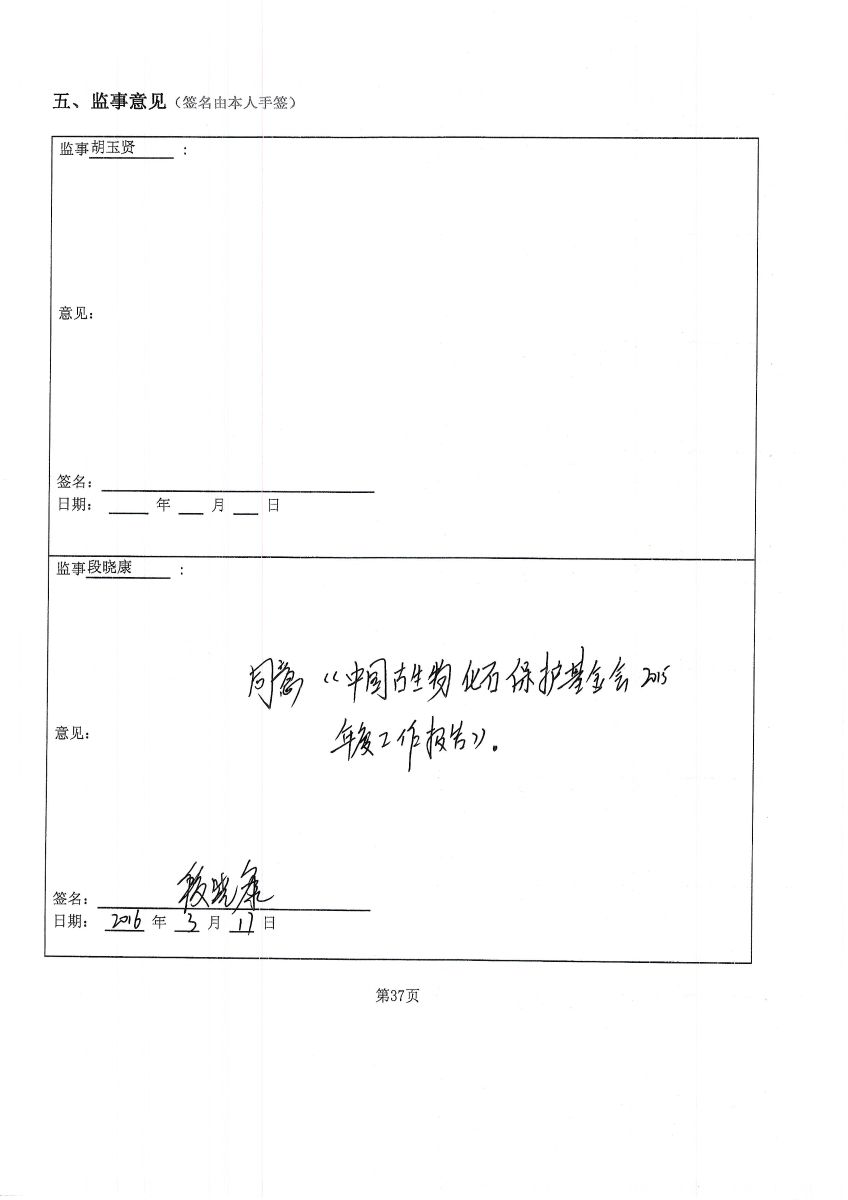 五、监事意见（签名由本人手签）
监事胡玉贤：
意见：
签名：
日期： 年 月 日
监事段晓康：
同意《中国古生物化石保护基金会2015
年度工作报告》。
意见：
签名：段晓康
日期：2016年3月17日
第37页